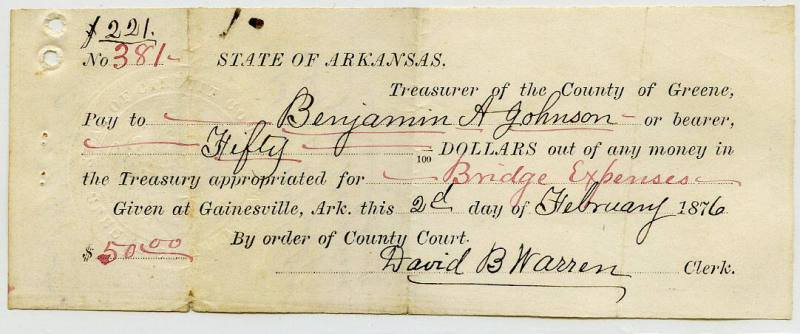 $221.
No 381 STATE OF ARKANSAS.
Treasurer of the County of Greene,
Pay to Benjamin A Johnson or bearer,
Fifty /100 DOLLARS out of any money in
the Treasury appropriated for Bridge Expenses
Given at Gainesville, Ark. this 2d day of February 1876
By order of County Court.
$ 50.00
David B Warren Clerk.